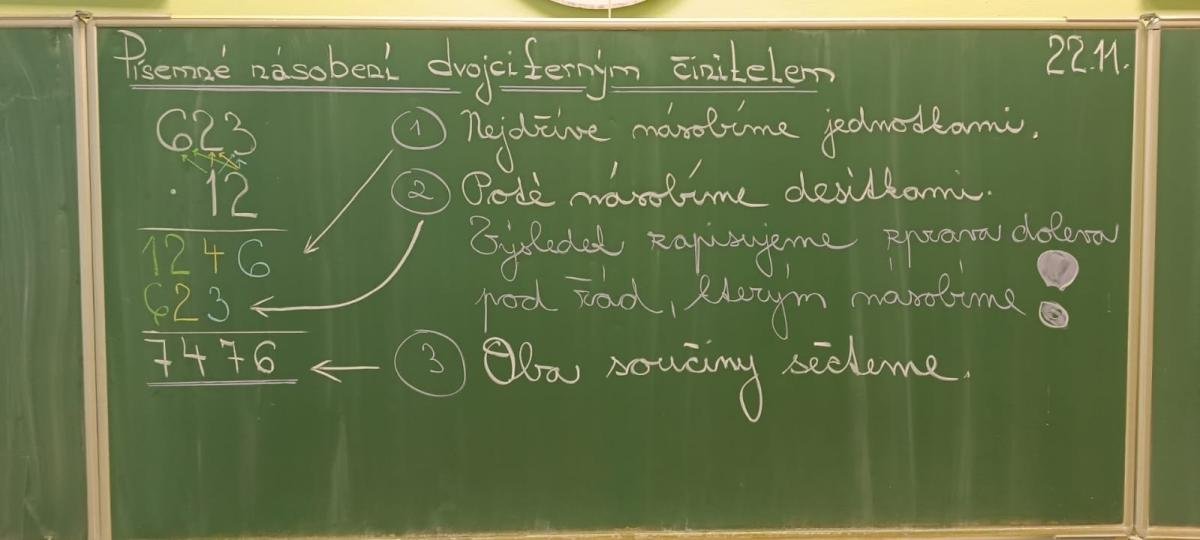 Písemné násobení dvojciferným činitelem
22.11.
623
· 12
1246
623
7476
1 Nejdříve násobíme jednotkami.
2 Poté násobíme desítkami.
Výsledek zapisujeme zprava doleva
pod řád, kterým násobíme !
3 Oba součiny sečteme.